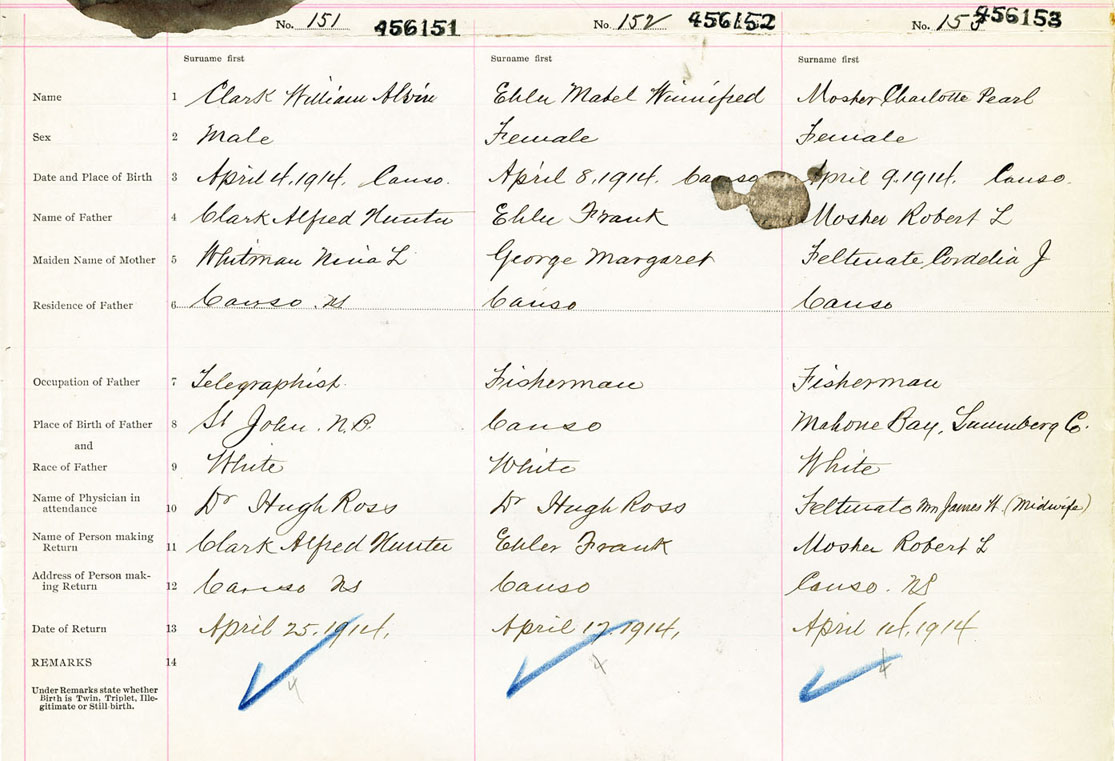 No. 151 456151 No. 152 456152 No. 153 456153
Surname first Surname first Surname first
Name 1 Clark William Alvin Ehler Mabel Winnifred Mosher Charlotte Pearl
Sex 2 Male Female Female
Date and Place of Birth 3 April 4, 1914. Canso. April 8, 1914. Canso April 9, 1914. Canso.
Name of Father 4 Clark Alfred Hunter Ehler Frank Mosher Robert L
Maiden Name of Mother 5 Whitman Nina L George Margaret Feltmate, Cordelia J
Residence of Father 6 Canso. NS Canso Canso
Occupation of Father 7 Telegraphist. Fisherman Fisherman
Place of Birth of Father 8 St John. N.B. Canso Mahone Bay, Lunenberg C.
and
Race of Father 9 White White White
Name of Physician in
attendance 10 Dr Hugh Ross Dr Hugh Ross Feltmate Mrs James W. (Midwife)
Name of Person making
Return 11 Clark Alfred Hunter Ehler Frank Mosher Robert L
Address of Person mak-
ing Return 12 Canso NS Canso Canso. NS
Date of Return 13 April 25, 1914, April 17, 1914, April 14, 1914
REMARKS 14 4 4 4
Under Remarks state whether
Birth is Twin, Triplet, Ille-
gitimate or Still-birth.